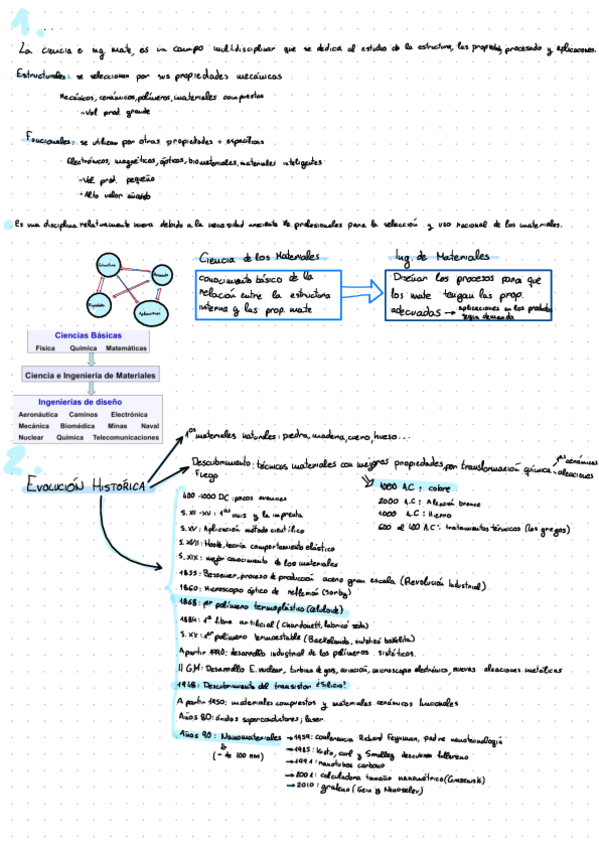 1.
La ciencia e ing. mate, es un campo multidisciplinar que se dedica al estudio de la estructura, las propiedades, procesado y aplicaciones.
Estructurales: se seleccionan por sus propiedades mecánicas
Metálicos, cerámicos, polímeros, materiales compuestos
-Vol prod. grande
Funcionales: se utilizan por otras propiedades + específicas
Electrónicos, magnéticos, ópticos, biomateriales, materiales inteligentes
-Vol prod. pequeño
-Alto valor añadido
Es una disciplina relativamente nueva debido a la necesidad creciente de profesionales para la selección y uso racional de los materiales.
Estructura
Procesado
Propiedades
Aplicaciones
Ciencia de los Materiales
conocimiento básico de la
relación entre la estructura
interna y las prop. mate
Ing. de Materiales
Diseñar los procesos para que
los mate tengan las prop.
adecuadas → aplicaciones en los productos
según demanda
Ciencias Básicas
Física Química Matemáticas
Ciencia e Ingeniería de Materiales
Ingenierías de diseño
Aeronáutica Caminos Electrónica
Mecánica Biomédica Minas Naval
Nuclear Química Telecomunicaciones
2.
EVOLUCIÓN HISTÓRICA
1os materiales naturales: piedra, madera, cuero, hueso...
Descubrimiento: técnicas materiales con mejores propiedades, por transformación química: 1as cerámicas
Fuego
aleaciones
4000 A.C: cobre
2000 A.C: Aleación bronce
1000 A.C: Hierro
600 al 400 A.C: tratamientos térmicos (los griegos)
400-1000 DC: pocos avances
S. XI-XV: 1as univ y la imprenta
S. XV: Aplicación método científico
S. XVII: Hooke, teoría comportamiento elástico
S. XIX: mejor conocimiento de los materiales
1855: Bessemer, proceso de producción acero gran escala (Revolución Industrial)
1860: Microscopio óptico de reflexión (Sorby)
1868: 1er polímero termoplástico (celuloide)
1884: 1ª fibra artificial (Chardonett, fabricó seda)
S. XX: 1er polímero termoestable (Baekelando, sintetizó baquelita)
A partir 1930: desarrollo industrial de los polímeros sintéticos.
II G.M: Desarrollo E. nuclear, turbina de gas, aviación, microscopio electrónico, nuevas aleaciones metálicas
1948: Descubrimiento del transistor ¿Silicio?
A partir 1950: materiales compuestos y materiales cerámicos funcionales
Años 80: óxidos superconductores; laser
Años 90: Nanomateriales → 1959: conferencia Richard Feynman, padre nanotecnología
(- de 100 nm)
→ 1985: Kroto, curl y Smalley descubren fullereno
→ 1991: nanotubos carbono
→ 2001: calculadora tamaño nanométrico (Gimzewski)
→ 2010: grafeno (Geim y Novoselov)